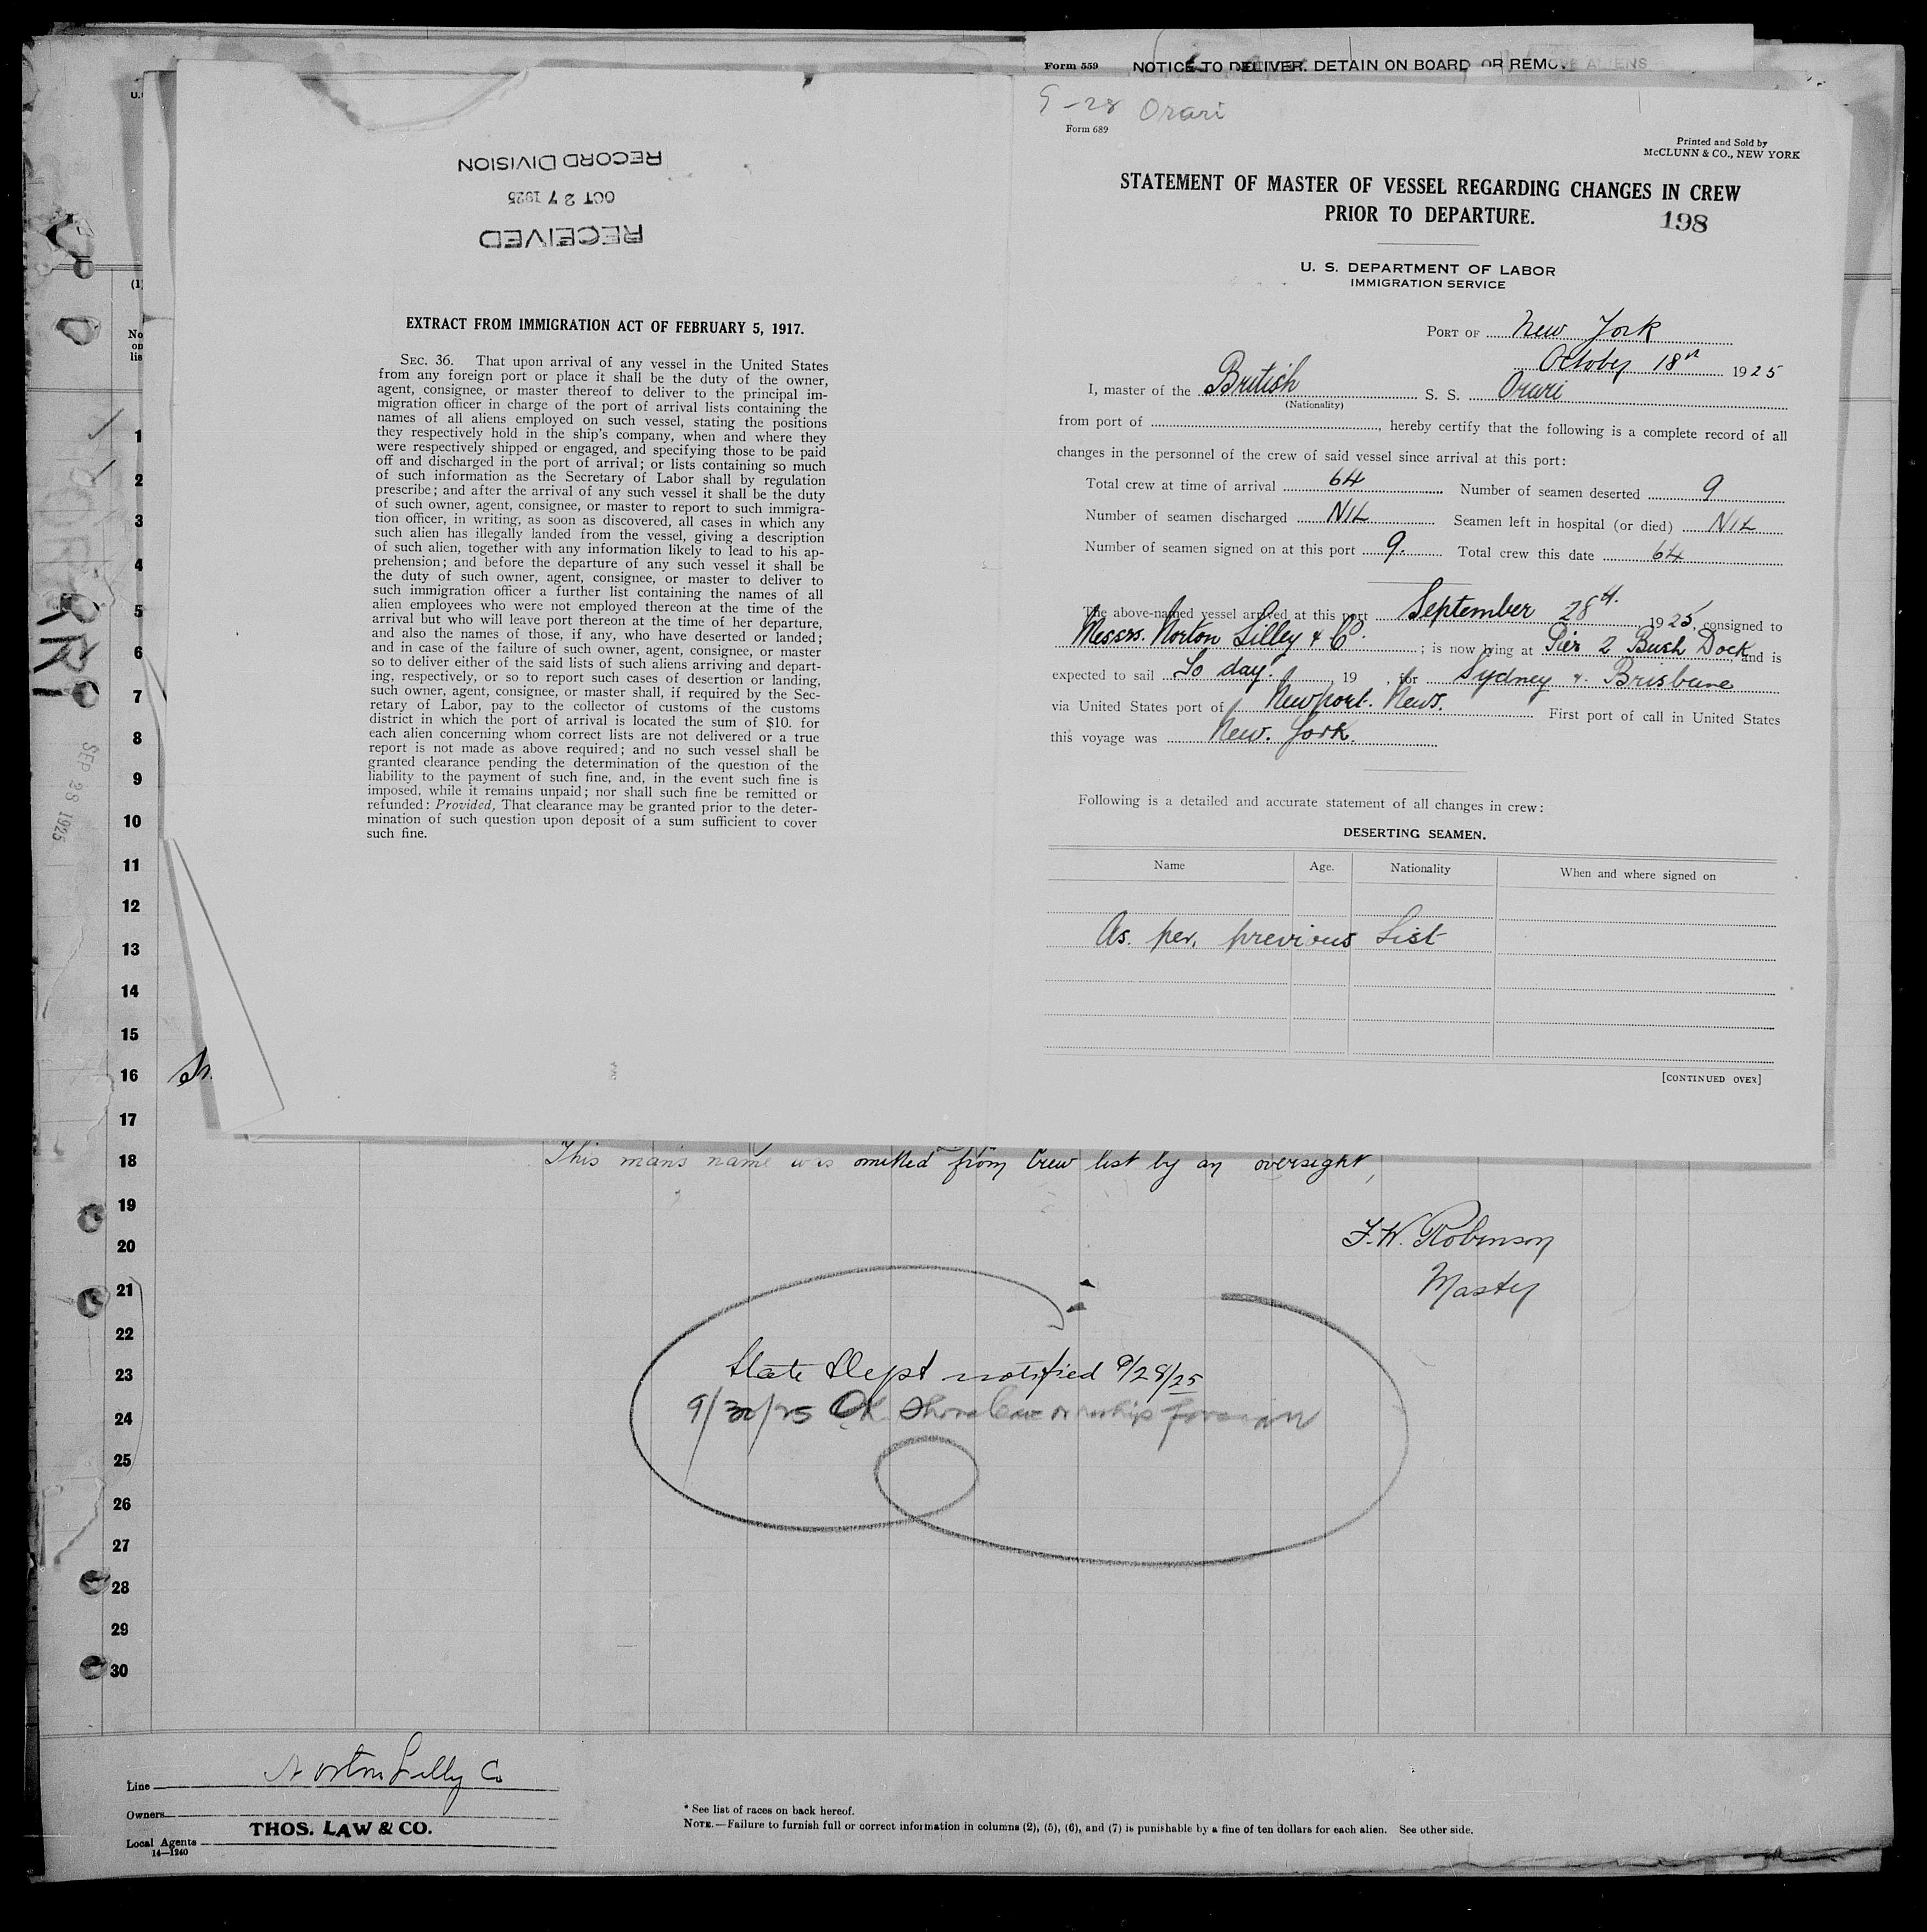 Form 559 NOTICE TO DELIVER, DETAIN ON BOARD OR REMOVE ALIENS
RECEIVED
OCT 27 1925
RECORD DIVISION
EXTRACT FROM IMMIGRATION ACT OF FEBRUARY 5, 1917.
SEC. 36. That upon arrival of any vessel in the United States
from any foreign port or place it shall be the duty of the owner,
agent, consignee, or master thereof to deliver to the principal im-
migration officer in charge of the port of arrival lists containing the
names of all aliens employed on such vessel, stating the positions
they respectively hold in the ship's company, when and where they
were respectively shipped or engaged, and specifying those to be paid
off and discharged in the port of arrival; or lists containing so much
of such information as the Secretary of Labor shall by regulation
prescribe; and after the arrival of any such vessel it shall be the duty
of such owner, agent, consignee, or master to report to such immigra-
tion officer, in writing, as soon as discovered, all cases in which any
such alien has illegally landed from the vessel, giving a description
of such alien, together with any information likely to lead to his ap-
prehension; and before the departure of any such vessel it shall be
the duty of such owner, agent, consignee, or master to deliver to
such immigration officer a further list containing the names of all
alien employees who were not employed thereon at the time of the
arrival but who will leave port thereon at the time of her departure,
and also the names of those, if any, who have deserted or landed;
and in case of the failure of such owner, agent, consignee, or master
so to deliver either of the said lists of such aliens arriving and depart-
ing, respectively, or so to report such cases of desertion or landing,
such owner, agent, consignee, or master shall, if required by the Sec-
retary of Labor, pay to the collector of customs of the customs
district in which the port of arrival is located the sum of $10. for
each alien concerning whom correct lists are not delivered or a true
report is not made as above required; and no such vessel shall be
granted clearance pending the determination of the question of the
liability to the payment of such fine, and, in the event such fine is
imposed, while it remains unpaid; nor shall such fine be remitted or
refunded: Provided, That clearance may be granted prior to the deter-
mination of such question upon deposit of a sum sufficient to cover
such fine.
9-28 Orari
Form 689
Printed and Sold by
McCLUNN & CO., NEW YORK
STATEMENT OF MASTER OF VESSEL REGARDING CHANGES IN CREW
PRIOR TO DEPARTURE.
198
U. S. DEPARTMENT OF LABOR
IMMIGRATION SERVICE
PORT OF New York
October 18th 1925
I, master of the British S. S. Orari
(Nationality)
from port of , hereby certify that the following is a complete record of all
changes in the personnel of the crew of said vessel since arrival at this port:
Total crew at time of arrival 64 Number of seamen deserted 9
Number of seamen discharged NIL Seamen left in hospital (or died) NIL
Number of seamen signed on at this port 9. Total crew this date 64
The above-named vessel arrived at this port September 28th. 1925, consigned to
Messrs. Norton Lilley & Co. ; is now lying at Pier 2 Bush Dock and is
expected to sail To day. 19 , for Sydney & Brisbane
via United States port of Newport. News. First port of call in United States
this voyage was New. York.
Following is a detailed and accurate statement of all changes in crew:
DESERTING SEAMEN.
Name Age. Nationality When and where signed on
As. per. previous List
[CONTINUED OVER]
(1)
No
on
lis
1
2
3
4
5
6
7
8
9
10
11
12
13
14
15
16
17
18 This mans name was omitted from Crew list by an oversight,
19
20 F. W. Robinson
21 Master
22
23 State Dept notified 9/28/25
24 9/30/25 OK
25
26
27
28
29
30
SEP 28 1925
Line Norton Lilly Co
Owners
Local Agents THOS. LAW & CO.
14—1240
* See list of races on back hereof.
NOTE.—Failure to furnish full or correct information in columns (2), (5), (6), and (7) is punishable by a fine of ten dollars for each alien. See other side.